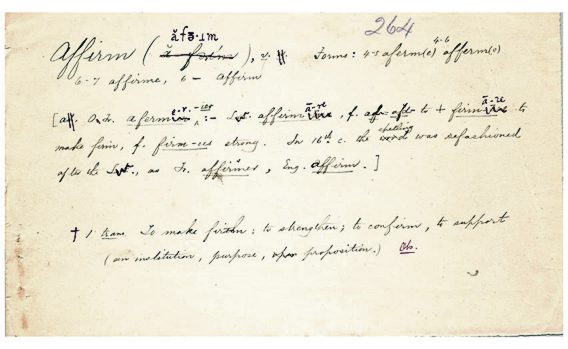 264
ăfɜ·ɹm
Affirm ( ), v. Forms: 4-5 aferm(e) 4-6 afferm(e)
6-7 affirme, 6- affirm
[a. O. Fr. afermer :- L. affirmāre, f. af- to + firmāre to
make firm, f. firm-us strong. In 16th c. the spelling was refashioned
after the L., as Fr. affirmer, Eng. affirm.]
† 1. trans. To make firm; to strengthen; to confirm, to support
(an institution, purpose, proposition.) Obs.